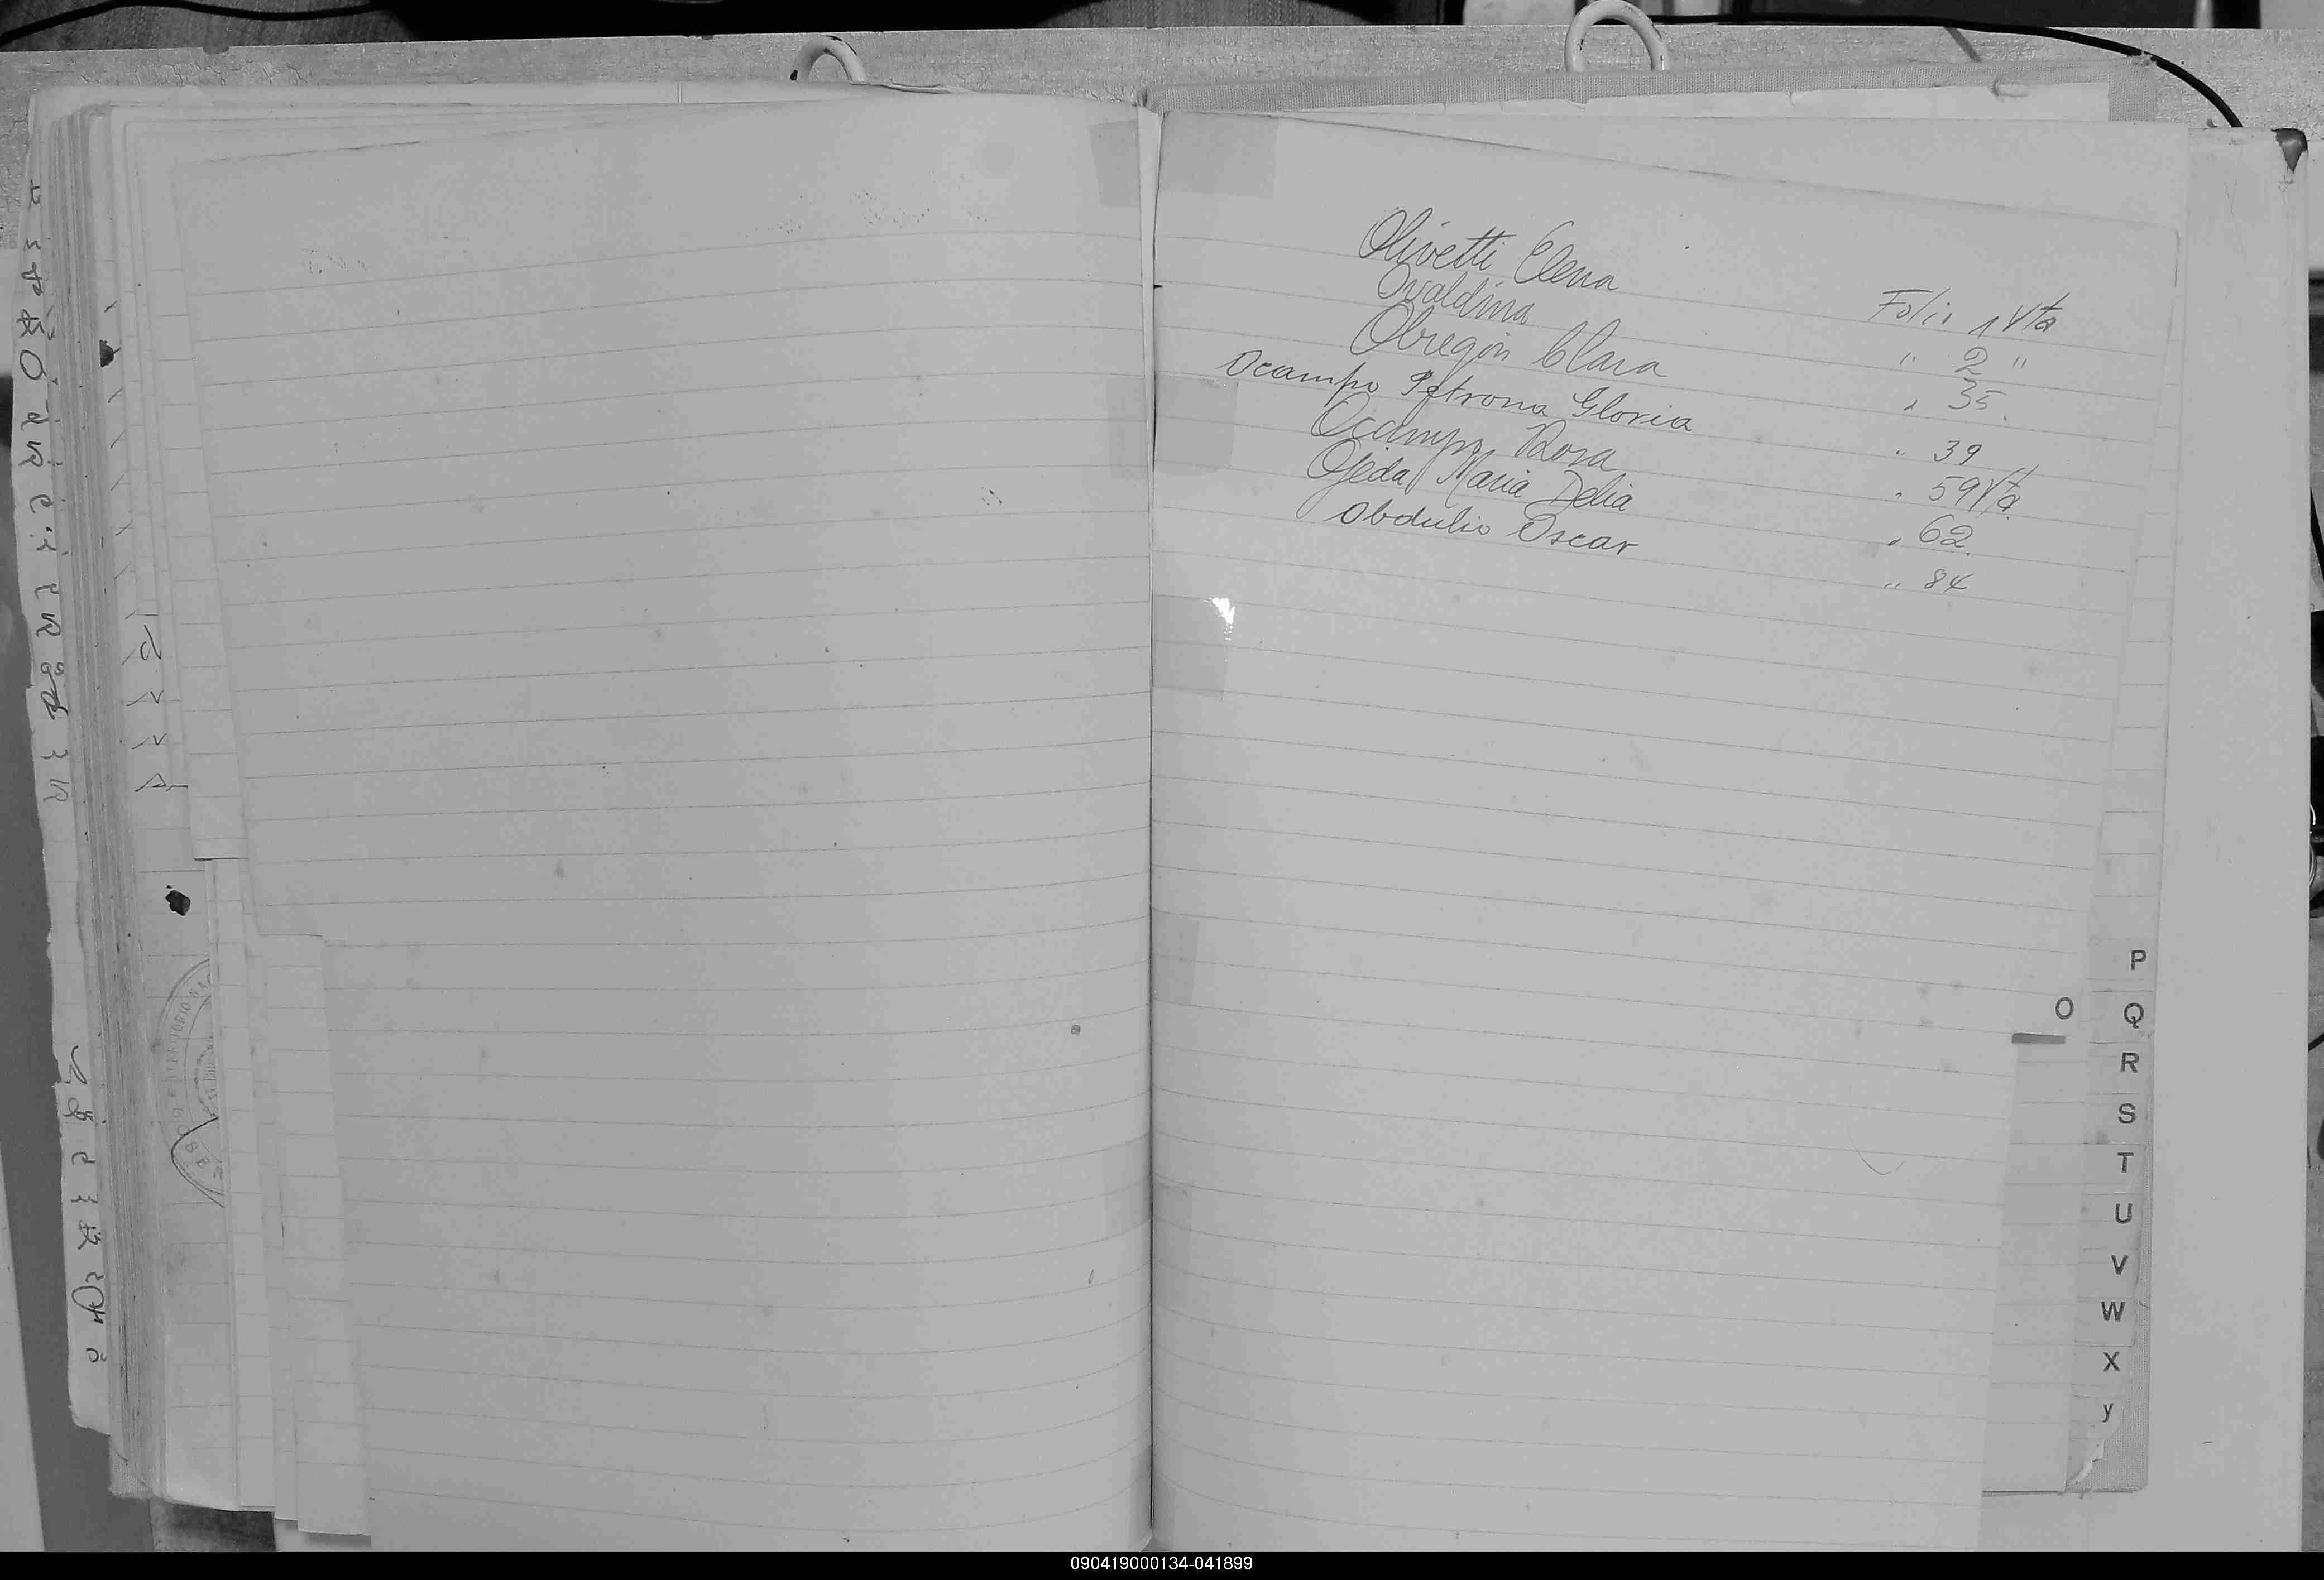 Olivetti Elena Folio 1 Vta
Ovaldina " 2 "
Obregón Clara " 35.
Ocampo Petrona Gloria " 39
Ocampo Rosa " 59 Vta.
Ojeda Maria Delia " 62.
Obdulio Oscar " 84
P
O Q
R
S
T
U
V
W
X
y
090419000134-041899